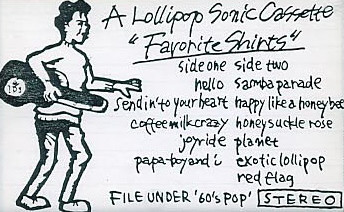 A Lollipop Sonic Cassette
"Favorite Shirts"
side one side two
hello samba parade
send in' to your heart happy like a honey bee
coffee milk crazy honey suckle rose
joyride planet
papa boy and i exotic lollipop
red flag
FILE UNDER '60's POP' STEREO